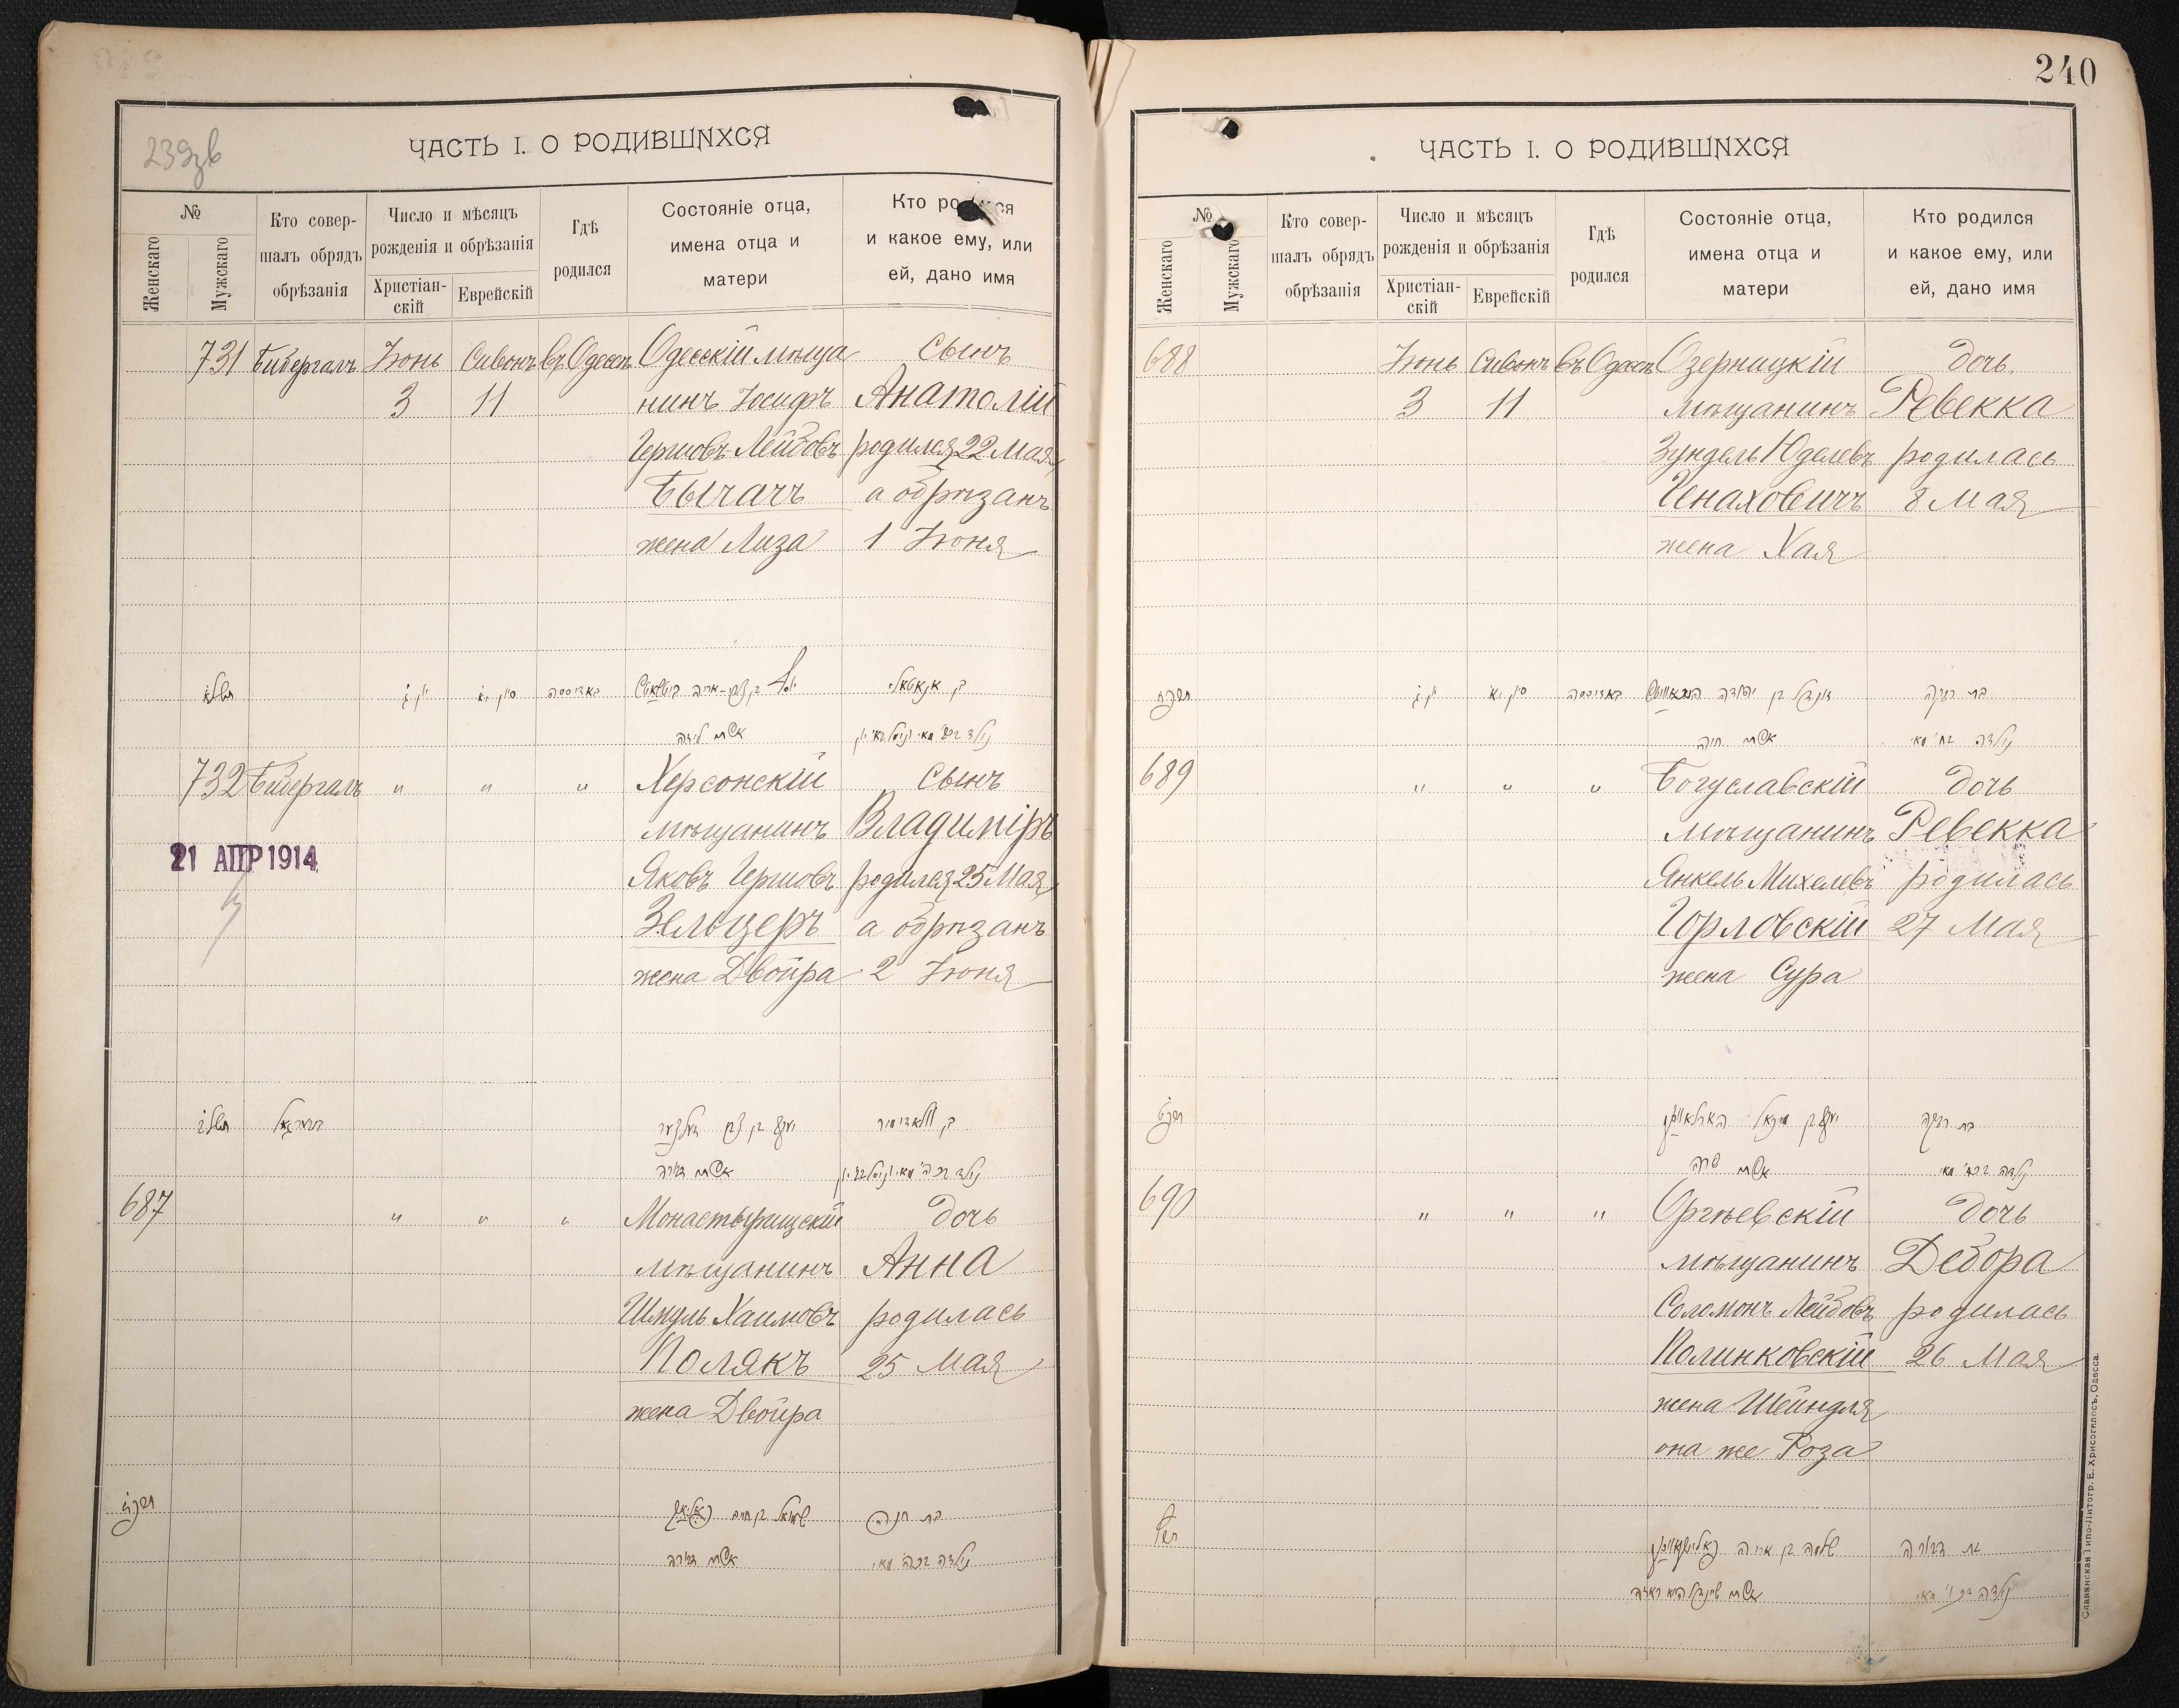 239зв
ЧАСТЬ I. О РОДИВШИХСЯ
№
Женскаго
Мужскаго
Кто совер-
шалъ обрядъ
обрѣзанія
Число и мѣсяцъ
рожденія и обрѣзанія
Христіан-
скій
Еврейскій
Гдѣ
родился
Состояніе отца,
имена отца и
матери
Кто родился
и какое ему, или
ей, дано имя
731 Бибергалъ Іюнь Сивонъ въ Одессѣ Одесскій мѣща Сынъ
3 11 нинъ Іосифъ Анатолій
Гершовъ-Лейбовъ родился 22 Мая,
Бычачъ а обрѣзанъ
жена Лиза 1 Іюня
באדיססה
בן אנאטאלי
אשתו ליזה
732 Бибергалъ " " " Херсонскій Сынъ
мѣщанинъ Владиміръ
21 АПР 1914
Яковъ Гершовъ родился 25 Мая,
Зельцеръ а обрѣзанъ
жена Двойра 2 Іюня
בן וולאדימיר
687 " " " Монастырищскій дочь
мѣщанинъ Анна
Шмуль Хаимовъ родилась
Полякъ 25 Мая
жена Двойра
שמואל בן חיים
240
ЧАСТЬ I. О РОДИВШИХСЯ
№
Женскаго
Мужскаго
Кто совер-
шалъ обрядъ
обрѣзанія
Число и мѣсяцъ
рожденія и обрѣзанія
Христіан-
скій
Еврейскій
Гдѣ
родился
Состояніе отца,
имена отца и
матери
Кто родился
и какое ему, или
ей, дано имя
688 Іюнь Сивонъ въ Одессѣ Озерницкій дочь
3 11 мѣщанинъ Ревекка
Зундель Юделевъ родилась
Генаховичъ 8 Мая
жена Хая
באדיססה
בת רבקה
אשתו חיה
689 " " " Богуславскій дочь
мѣщанинъ Ревекка
Янкель Михелевъ родилась
Горловскій 27 Мая
жена Сура
בת רבקה
אשתו שרה
690 " " " Оргѣевскій дочь
мѣщанинъ Дебора
Соломонъ Лейбовъ родилась
Полинковскій 26 Мая
жена Шейндля
она же Роза
שלמה בן אריה
בת דבורה
Славянская Типо-Литогр. Е. Хрисогелосъ, Одесса.